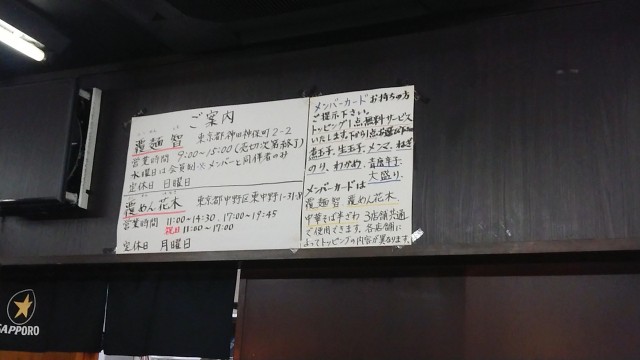 ご案内
覆麺 智 東京都神田神保町2-2
営業時間 9:00~15:00(売切次第終了)
水曜日は会員制※メンバーと同伴者のみ
定休日 日曜日
覆めん花木 東京都中野区東中野1-31-8
営業時間 11:00~14:30、17:00~19:45
祝日 11:00~17:00
定休日 月曜日
メンバーカードお持ちの方
ご提示下さい。
トッピング1点、無料サービス
いたします。下から1点お選び下さい
煮玉子、生玉子、メンマ、ねぎ
のり、わかめ、青唐辛子、
大盛り、
メンバーカードは
覆麺智 覆めん花木
中華そば半ざわ 3店舗共通
で使用できます。各店舗に
よってトッピングの内容が異なります。
SAPPORO